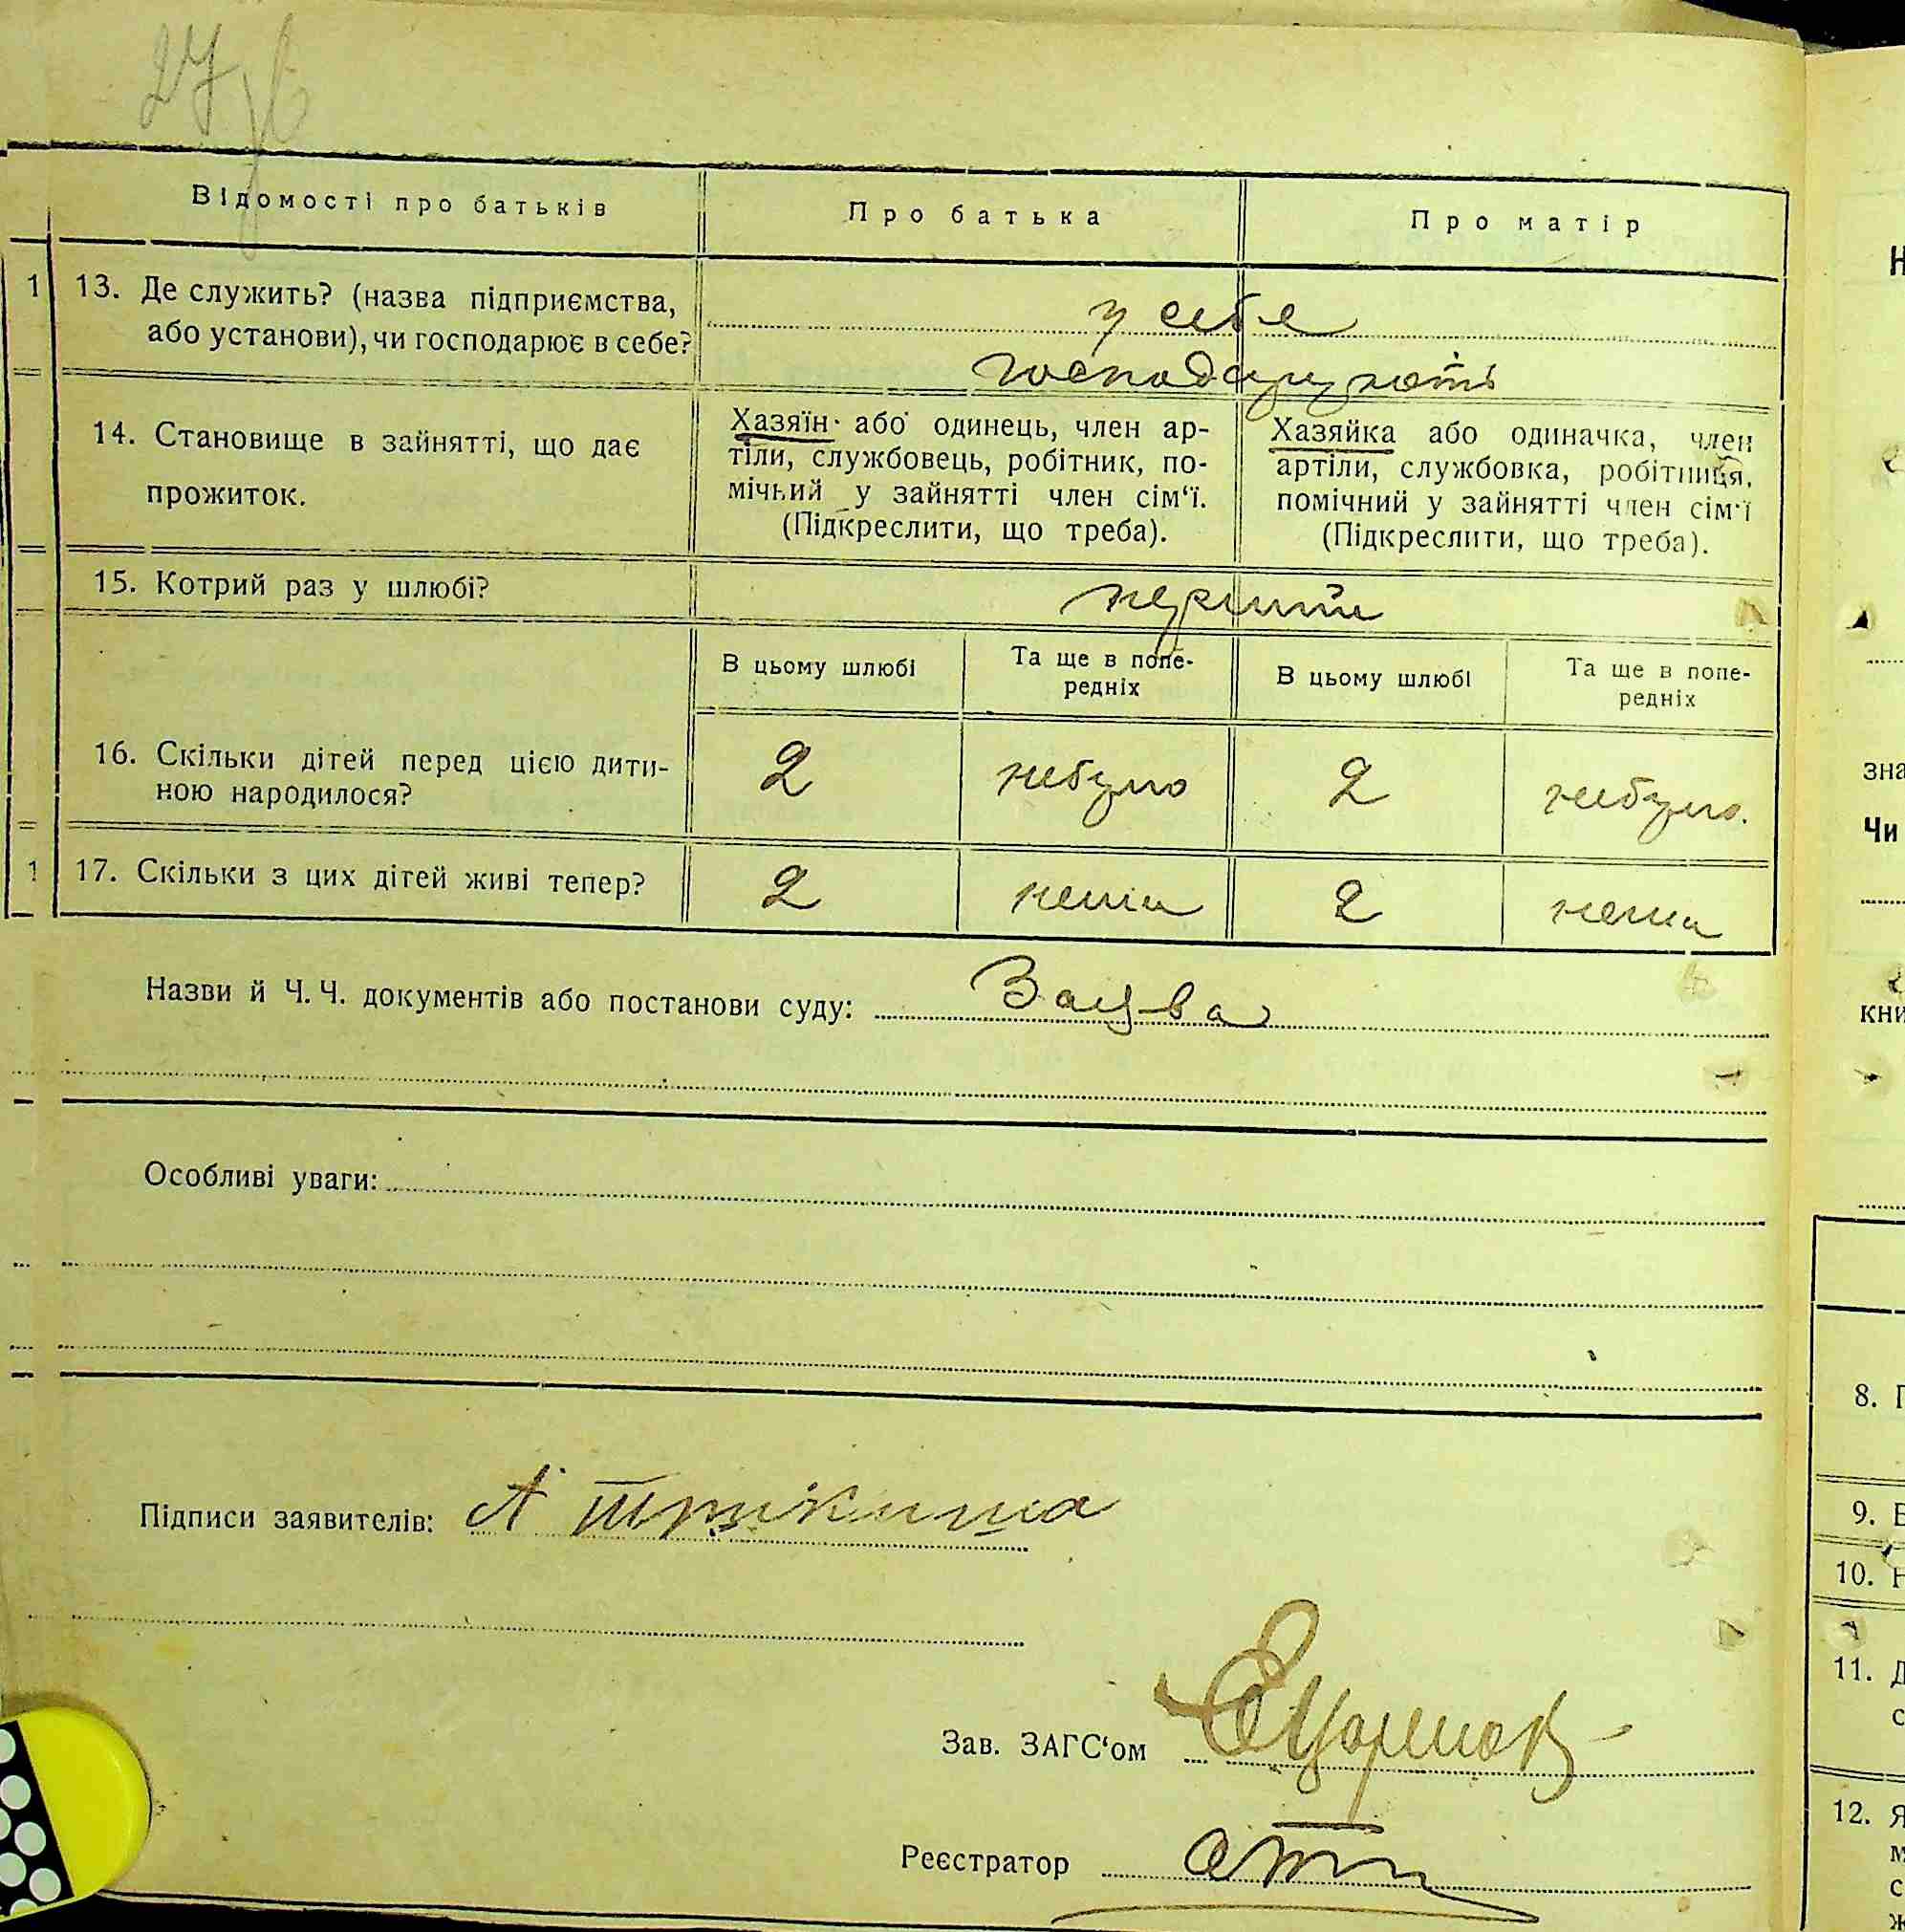 27
Відомості про батьків Про батька Про матір
1 13. Де служить? (назва підприємства,
або установи), чи господарює в себе?
у себе
господарують
14. Становище в зайнятті, що дає
прожиток.
Хазяїн або одинець, член ар-
тіли, службовець, робітник, по-
мічний у зайнятті член сім'ї.
(Підкреслити, що треба).
Хазяйка або одиначка, член
артіли, службовка, робітниця,
помічний у зайнятті член сім'ї
(Підкреслити, що треба).
15. Котрий раз у шлюбі? перший
В цьому шлюбі Та ще в попе-
редніх В цьому шлюбі Та ще в попе-
редніх
16. Скільки дітей перед цією дити-
ною народилося?
2 небуло 2 небуло.
1 17. Скільки з цих дітей живі тепер? 2 нема 2 нема
Назви й Ч. Ч. документів або постанови суду: Заява
Особливі уваги:
Підписи заявителів: А
Зав. ЗАГС'ом
Реєстратор
Н
зна
Чи
кни
8. П
9.
10. Н
11. Д
с
12. Я
м
с
ж